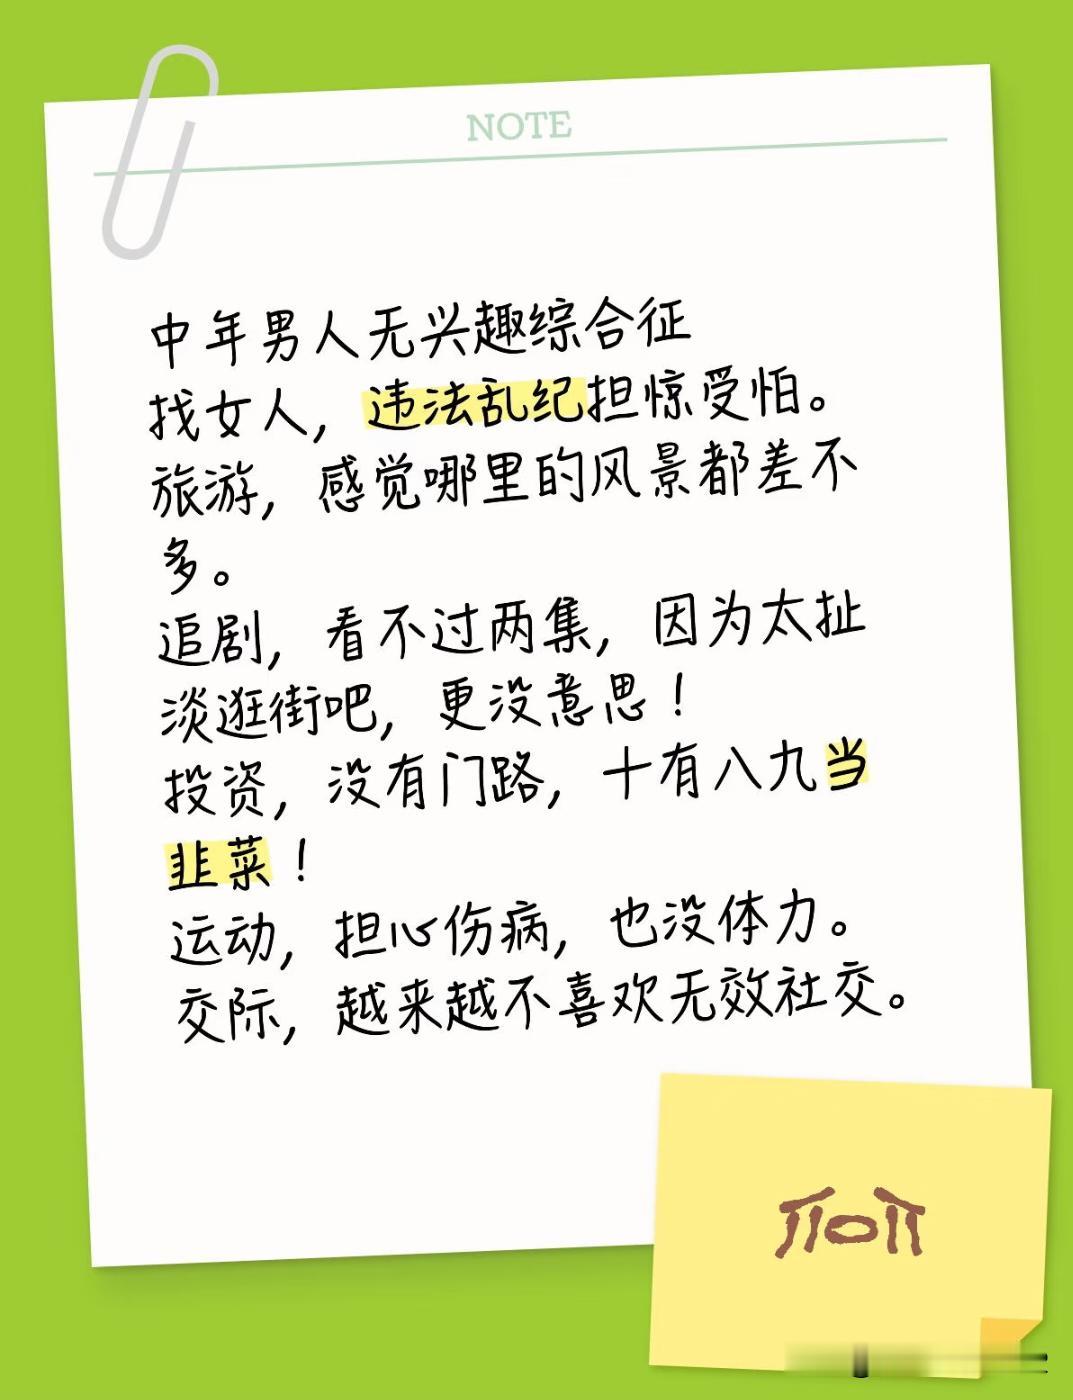 NOTE
中年男人无兴趣综合征
找女人，违法乱纪担惊受怕。
旅游，感觉哪里的风景都差不
多。
追剧，看不过两集，因为太扯
淡逛街吧，更没意思！
投资，没有门路，十有八九当
韭菜！
运动，担心伤病，也没体力。
交际，越来越不喜欢无效社交。